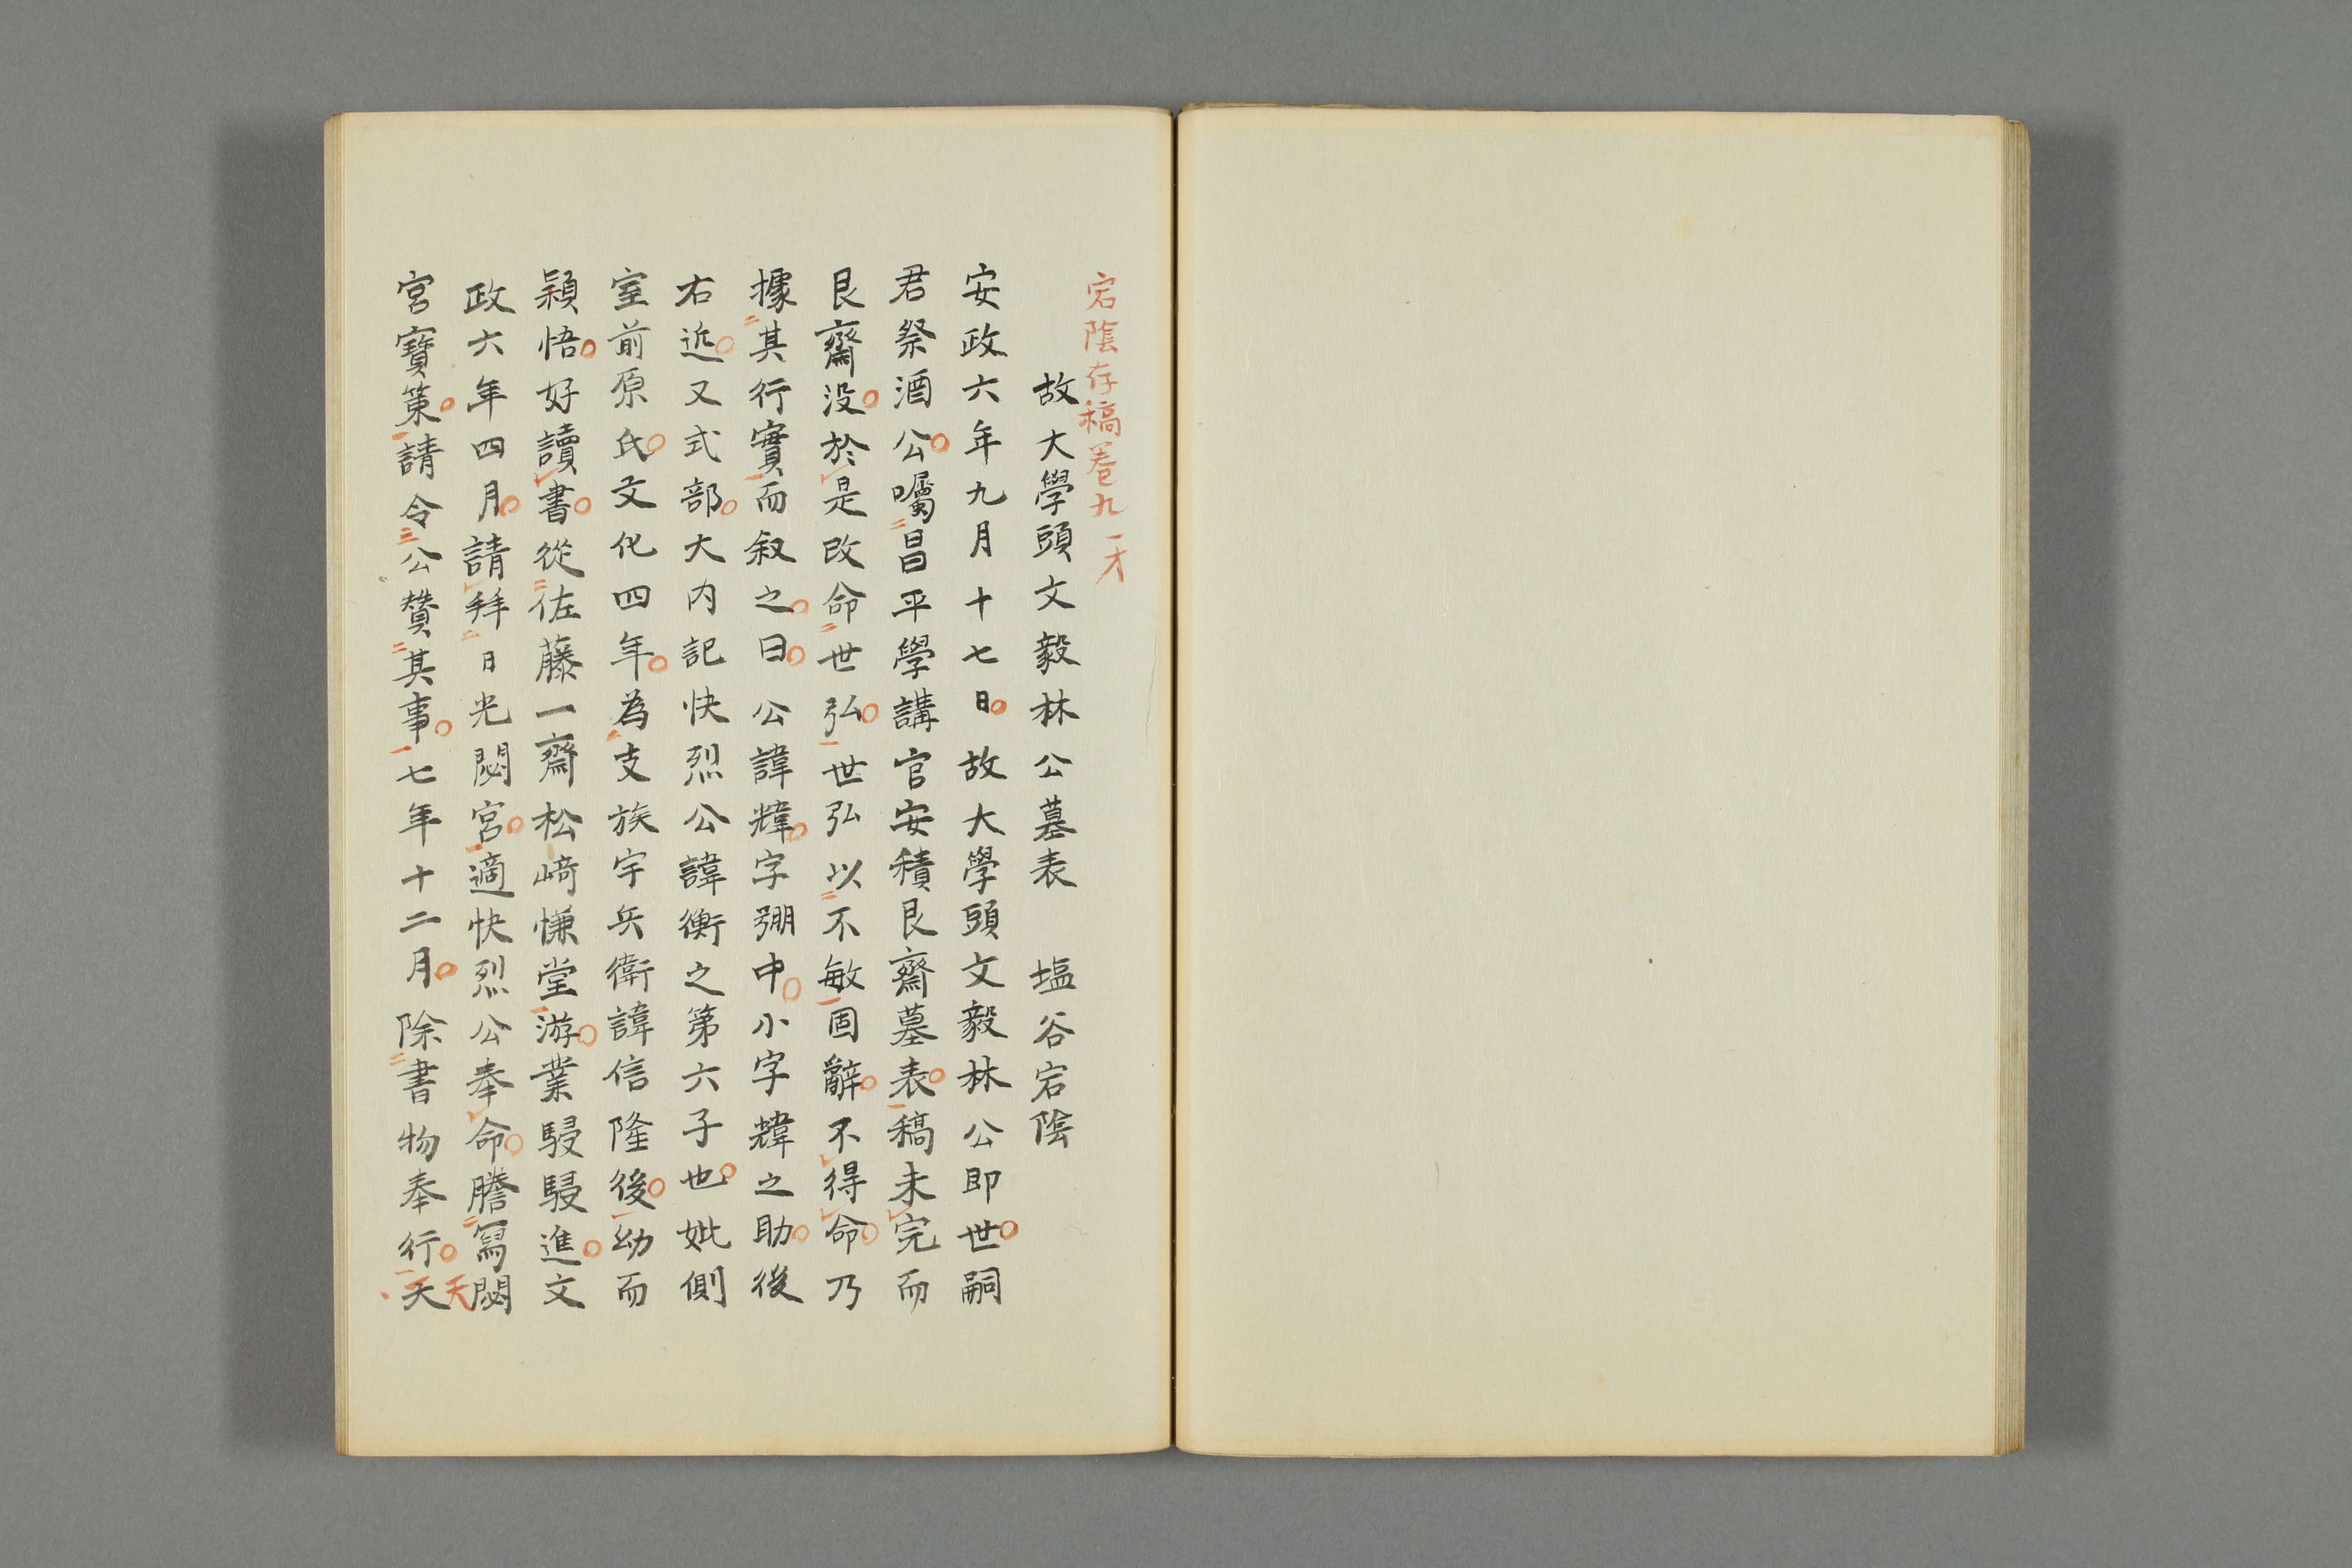 宕陰存稿卷九 一オ
故大學頭文毅林公墓表 塩谷宕陰
安政六年九月十七日。故大學頭文毅林公即世。嗣
君祭酒公。囑二昌平學講官安積艮齋墓表。一稿未レ完而
艮齋没。於レ是改命二世弘。一世弘以二不敏一固辭。不レ得レ命。乃
據二其行實一而叙之。曰。公諱韑。字弸中。小字韑之助。後
右近。又式部。大内記快烈公諱衡之第六子也。妣側
室前原氏。文化四年。為二支族宇兵衛諱信隆後。一幼而
穎悟。好讀レ書。從二佐藤一齋松﨑慊堂一游。業駸駸進。文
政六年四月。請レ拜二日光閟宮。一適快烈公奉レ命。謄二寫閟
宮寶策。一請令三公贊二其事。一七年十二月。除二書物奉行。一天
天